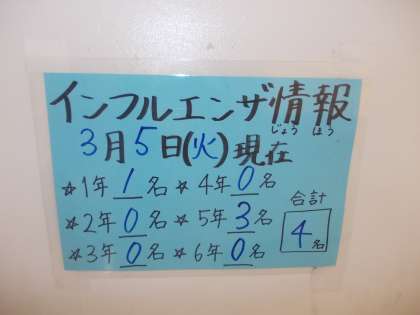 インフルエンザ情報
じょう ほう
3月5日(火)現在
☆1年 1名 ☆4年 0名
合計
☆2年 0名 ☆5年 3名
4名
☆3年 0名 ☆6年 0名